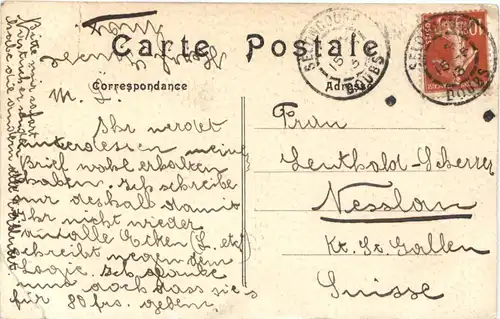 Carte Postale
Correspondance
Adresse
M. L.
Ihr werdet
unterdessen meinen
Brief wohl erhalten
haben. Ich schreibe
nur deshalb damit
Ihr nicht wieder
an alle Ecken (L. etc)
schreibt wegen dem
Logie. Ich glaube
und doch dass sie
für 80 frs. geben.
Bitte mir sofort
SELONCOURT
DOUBS
SELONCOURT
DOUBS
10
Frau
Leuthold-Scherrer
Nesslau
Kt. St. Gallen
Suisse